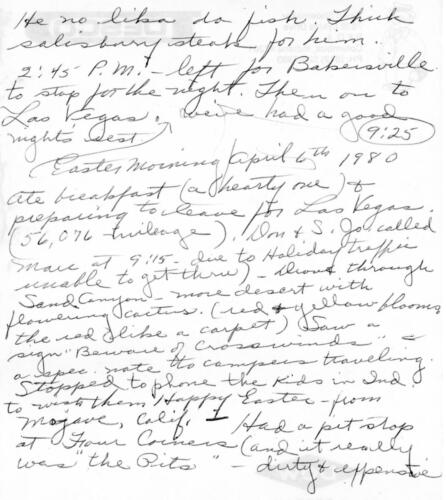 He no lika da fish. Think
salisbury steak for him.
2:45 P.M. - left for Bakersville
to stop for the night. Then on to
Las Vegas. we've had a good
night's rest 9:25
Easter Morning/April 6th 1980
Ate breakfast (a hearty one) &
preparing to leave for Las Vegas.
(56,076 - mileage). Don & S. Jo called
Marc at 9:15 - due to Holiday traffic
unable to get thru) - Drove through
Sand Canyon - more desert with
flowering cactus. (red & yellow blooms
the red like a carpet) Saw a
sign "Beware of Crosswinds" -
a spec. note to campers traveling.
Stopped to phone the Kids in Ind.
to wish them Happy Easter - from
Mojave, Calif. Had a pit stop
at Four Corners (and it really
was "the Pits" - dirty & offensive